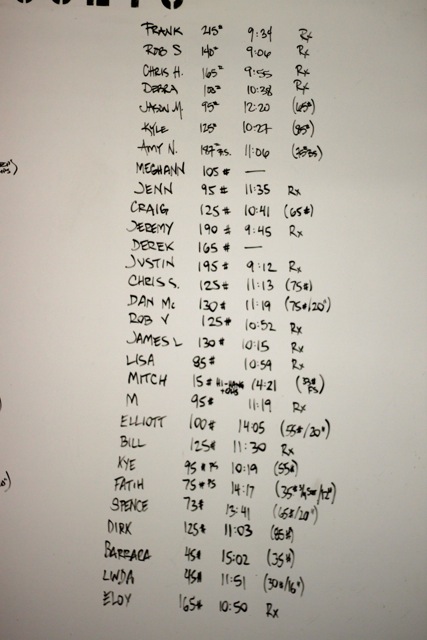 FRANK 215# 9:34 Rx
ROB S 140# 9:06 Rx
CHRIS H. 165# 9:55 Rx
DEBRA 10:38 Rx
JASON M. 95# 12:20 (65#)
KYLE 125# 10:27 (85#)
AMY N. 11:06
MEGHANN 105# —
JENN 95# 11:35 Rx
CRAIG 125# 10:41 (65#)
JEREMY 190# 9:45 Rx
DEREK 165# —
JUSTIN 195# 9:12 Rx
CHRIS S. 125# 11:13 (75#)
DAN Mc 130# 11:19 (75#/20")
ROB V 125# 10:52 Rx
JAMES L 130# 10:15 Rx
LISA 85# 10:59 Rx
MITCH 15# 14:21
M 95# 11:19 Rx
ELLIOTT 100# 14:05 (55#/20")
BILL 125# 11:30 Rx
KYE 95# PS 10:19 (55#)
FATIH 75# PS 14:17
SPENCE 73# 13:41 (65#/20")
DIRK 125# 11:03 (85#)
BARRACA 45# 15:02 (35#)
LINDA 45# 11:51 (30#/16")
ELOY 165# 10:50 Rx